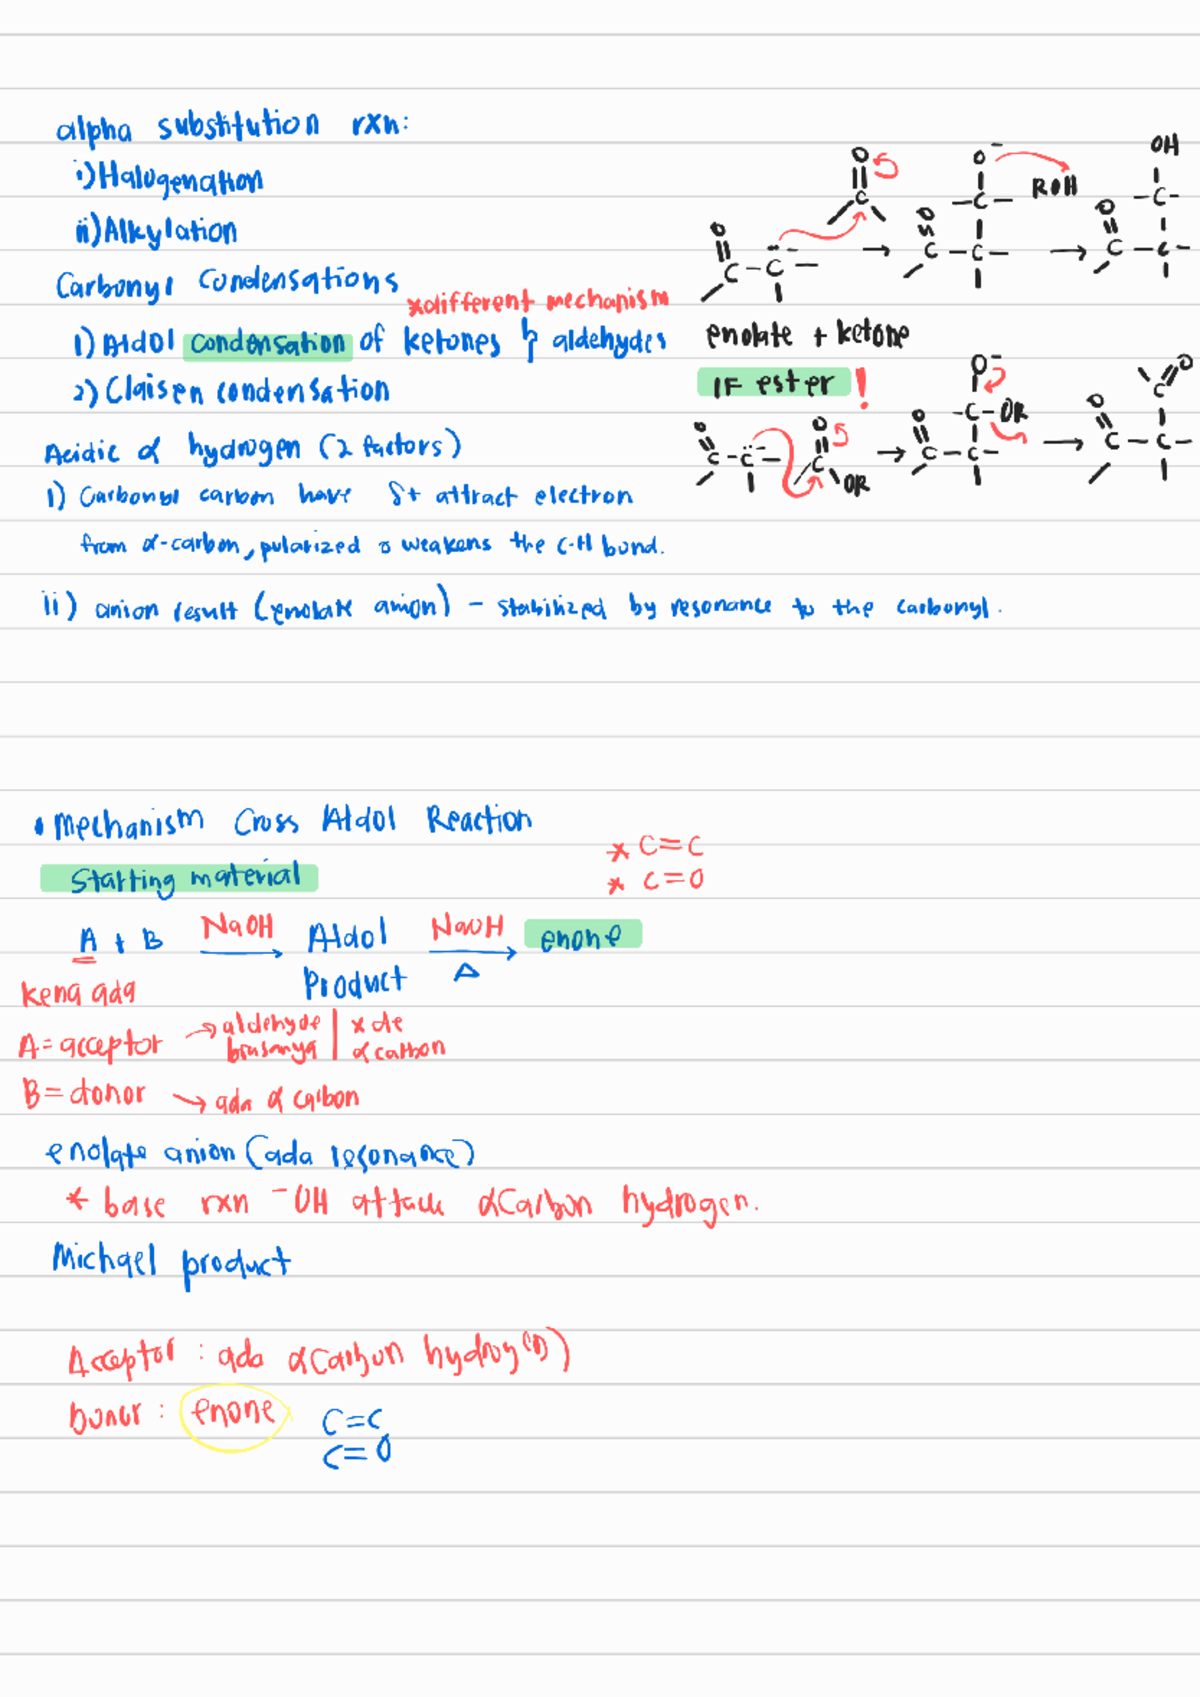 alpha substitution rxn:
i) Halogenation
ii) Alkylation
Carbonyl Condensations
*different mechanism
1) Aldol condensation of ketones & aldehydes
2) Claisen condensation
enolate + ketone
IF ester !
O
||
C
O
||
C - C -
→
O⁻
- C -
O
||
C - C -
ROH
→
OH
- C -
O
||
C - C -
O
||
C - C -
O
||
C
OR
→
O⁻
- C - OR
O
||
C - C -
→
O
C
O
||
C - C -
Acidic α hydrogen (2 factors)
i) Carbonyl carbon have δ+ attract electron
from α-carbon, polarized & weakens the C-H bond.
ii) anion result (enolate anion) - stabilized by resonance to the carbonyl.
• Mechanism Cross Aldol Reaction
* C=C
* C=O
Starting material
A + B NaOH → Aldol Product NaOH Δ → enone
kena ada
A = acceptor → aldehyde biasanya | x de α carbon
B = donor → ada α carbon
enolate anion (ada resonance)
* base rxn ⁻OH attack α carbon hydrogen.
Michael product
Acceptor : ada α carbon hydrog(n)
Donor : enone C=C
C=O